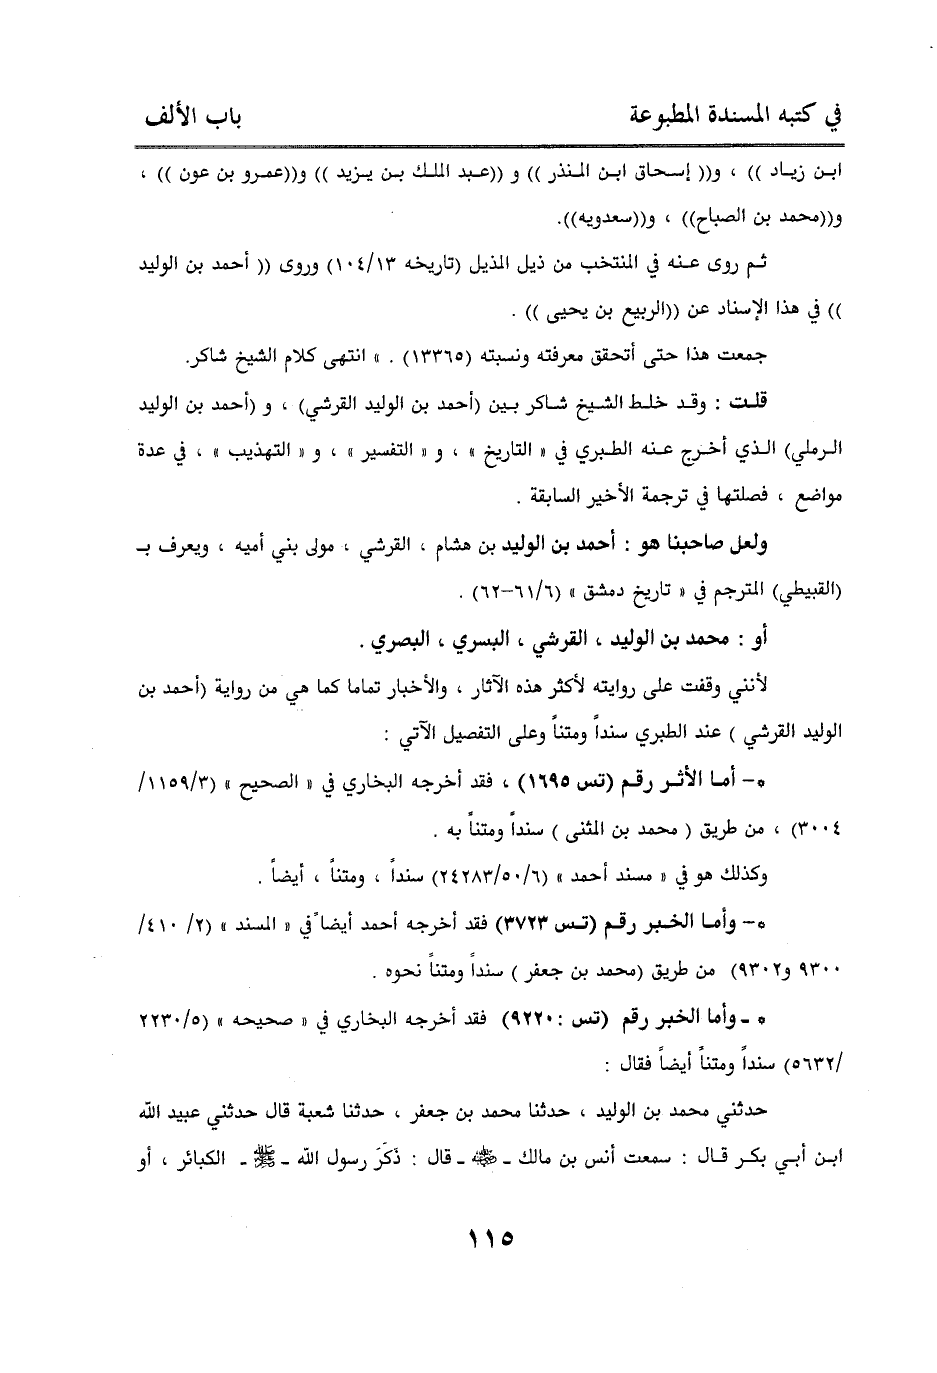 في كتبه المسندة المطبوعة
باب الألف
ابن زياد )) ، و(( إسحاق ابن المنذر )) و ((عبد الملك بن يزيد )) و((عمرو بن عون )) ،
و((محمد بن الصباح)) ، و((سعدويه)).
ثم روى عنه في المنتخب من ذيل المذيل (تاريخه ١٠٤/١٣) وروى (( أحمد بن الوليد
)) في هذا الإسناد عن ((الربيع بن يحيى )) .
جمعت هذا حتى أتحقق معرفته ونسبته (١٣٣٦٥) . » انتهى كلام الشيخ شاكر.
قلت : وقد خلط الشيخ شاكر بين (أحمد بن الوليد القرشي) ، و (أحمد بن الوليد
الرملي) الذي أخرج عنه الطبري في « التاريخ » ، و « التفسير » ، و « التهذيب » ، في عدة
مواضع ، فصلتها في ترجمة الأخير السابقة .
ولعل صاحبنا هو : أحمد بن الوليد بن هشام ، القرشي ، مولى بني أميه ، ويعرف بـ
(القبيطي) المترجم في « تاريخ دمشق » (٦١/٦–٦٢) .
أو : محمد بن الوليد ، القرشي ، البسري ، البصري .
لأنني وقفت على روايته لأكثر هذه الآثار ، والأخبار تماما كما هي من رواية (أحمد بن
الوليد القرشي ) عند الطبري سنداً ومتناً وعلى التفصيل الآتي :
*– أما الأثر رقم (تس ١٦٩٥) ، فقد أخرجه البخاري في « الصحيح » (١١٥٩/٣/
٣٠٠٤) ، من طريق ( محمد بن المثنى ) سنداً ومتناً به .
وكذلك هو في « مسند أحمد » (٢٤٢٨٣/٥٠/٦) سنداً ، ومتناً ، أيضاً .
*– وأما الخبر رقم (تس ٣٧٢٣) فقد أخرجه أحمد أيضاً في « المسند » (٢/ ٤١٠/
٩٣٠٠ و٩٣٠٢) من طريق (محمد بن جعفر ) سنداً ومتناً نحوه .
* ـ وأما الخبر رقم (تس : ٩٢٢٠) فقد أخرجه البخاري في « صحيحه » (٢٢٣٠/٥
/٥٦٣٢) سنداً ومتناً أيضاً فقال :
حدثني محمد بن الوليد ، حدثنا محمد بن جعفر ، حدثنا شعبة قال حدثني عبيد الله
ابن أبي بكر قال : سمعت أنس بن مالك ـ ﷺ ـ قال : ذَكَرَ رسول الله ـ ﷺ ـ الكبائر ، أو
١١٥